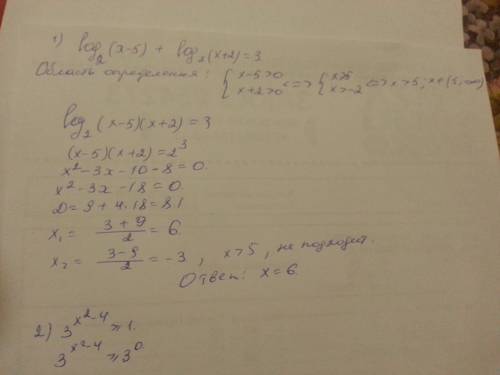 1) log₂(x-5) + log₂(x+2)=3
Область определения: { x-5>0 x+2>0 <=> { x>5 x>-2 <=> x>5; x∈(5,∞)
log₂(x-5)(x+2)=3
(x-5)(x+2)=2³
x²-3x-10-8=0.
x²-3x-18=0.
D=9+4·18=81
x₁= (3+9)/2 = 6.
x₂= (3-9)/2 = -3, x>5, не подходит.
Ответ: x=6.
2) 3^(x²-4) ≥ 1.
3^(x²-4) ≥ 3⁰.